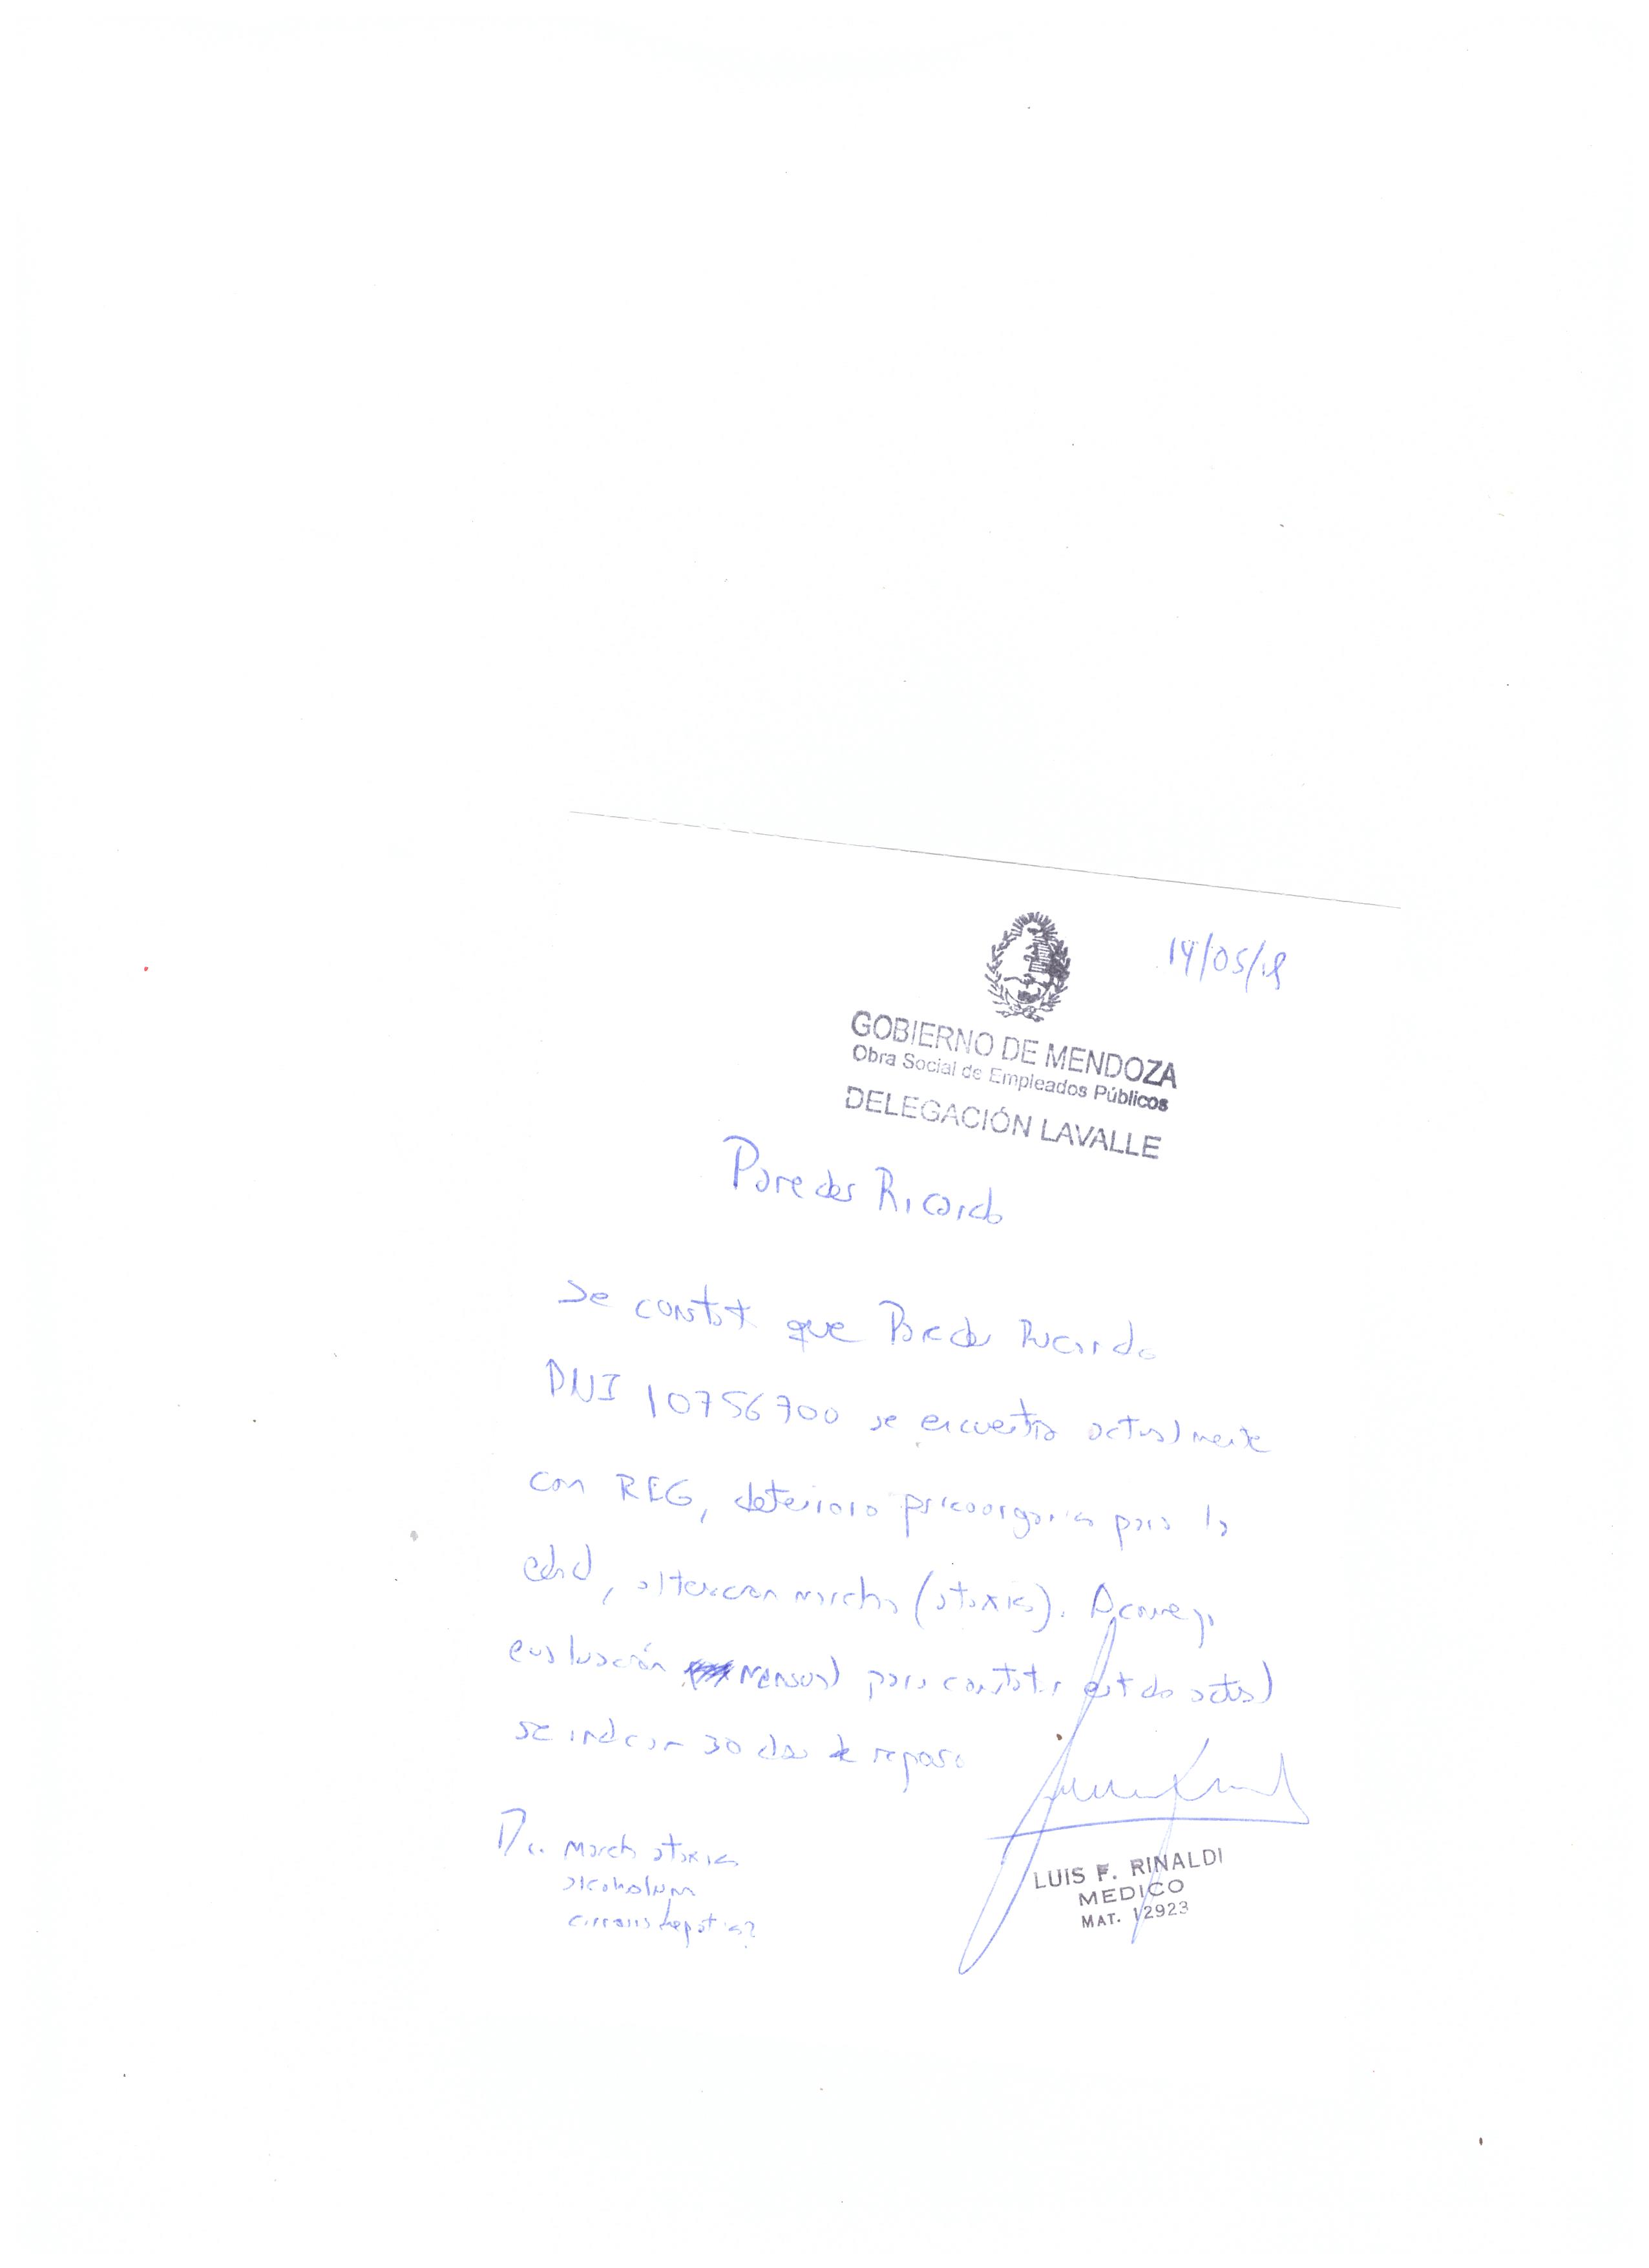 14/05/18
GOBIERNO DE MENDOZA
Obra Social de Empleados Públicos
DELEGACIÓN LAVALLE
Paredes Ricardo
Se constat que Paredes Ricardo
DNI 10756700 se encuentra actualmente
con REG, deterioro psicoorganico para la
edad, alteracion marcha (ataxica). Aconsejo
evaluación mensual para constatar estado actual
se indican 30 dias de reposo
Dx. marcha ataxica
alcoholismo
cirrosis hepatica?
LUIS F. RINALDI
MEDICO
MAT. 12923